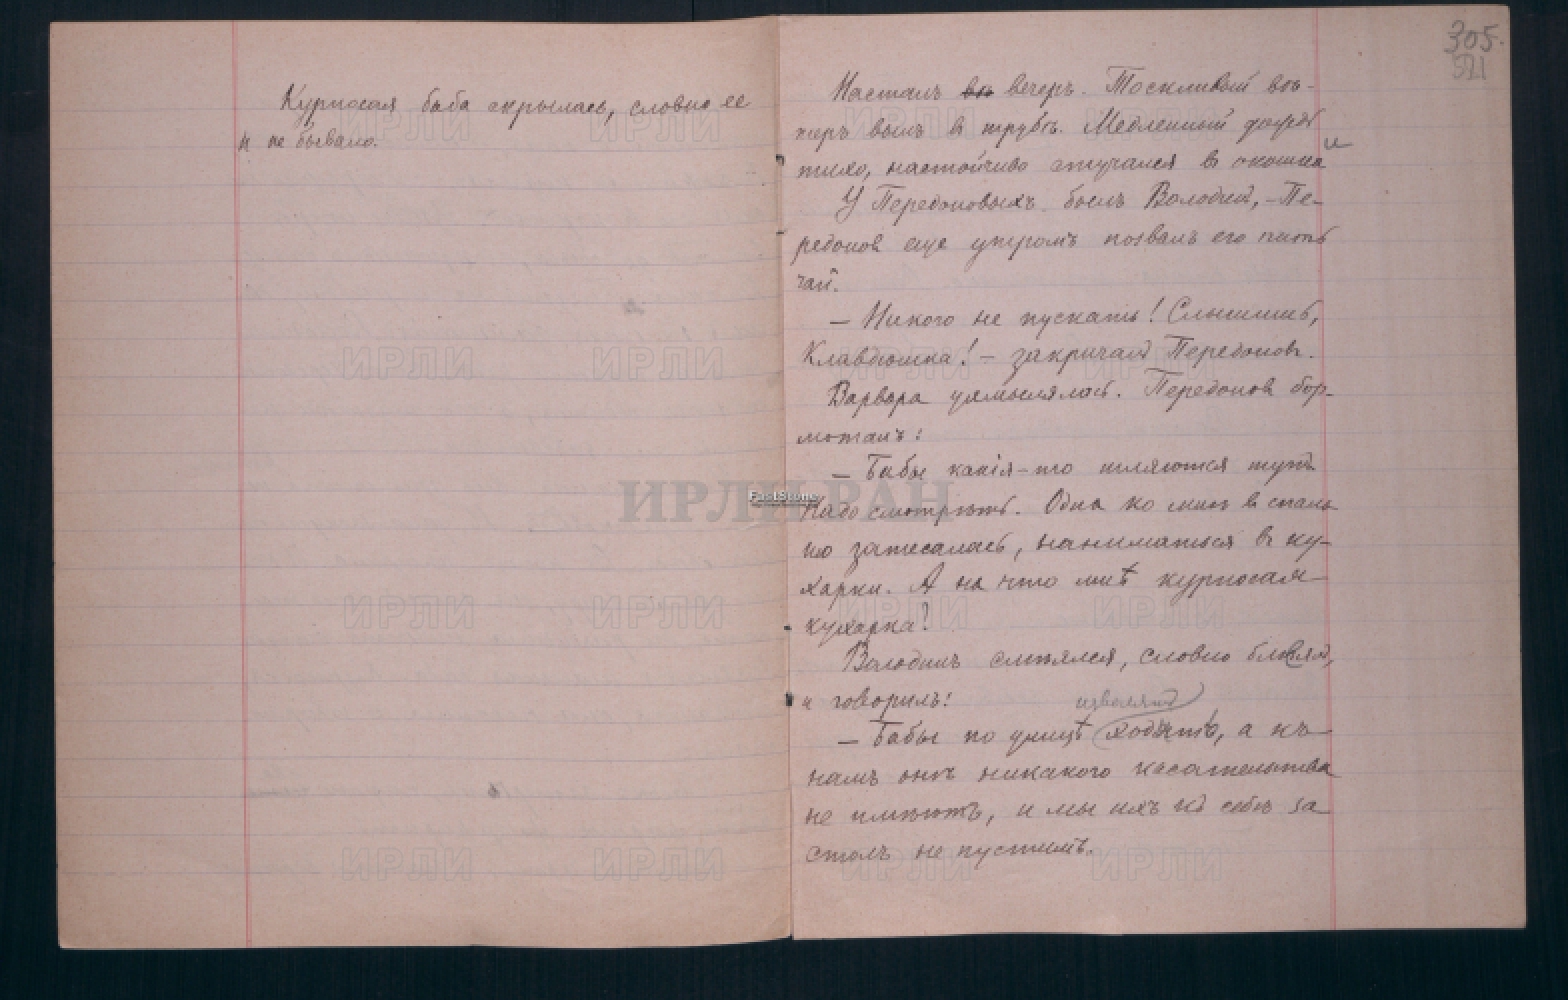 Курносая баба скрылась, словно ее
и не бывало.
305.
521
Насталъ вн вечеръ. Тоскливый вѣ-
теръ вылъ в трубѣ. Медленный дождь
тихо, настойчиво стучался в окошка
и
У Передоновыхъ былъ Володин, – Пе-
редонов еще утромъ позвалъ его пить
чай.
– Никого не пускать! Слышишь,
Клавдюшка! – закричал Передоновъ.
Варвара ухмылялась. Передонов бор-
моталъ:
– Бабы какія-то шляются тутъ.
Надо смотрѣть. Одна ко мнѣ в спаль-
ню затесалась, наниматься в ку-
харки. А на что мнѣ курносая
кухарка?
Володинъ смѣялся, словно блеял,
и говорилъ:
изволят
– Бабы по улицѣ ходить, а къ
намъ онѣ никакого касательства
не имѣютъ, и мы ихъ къ себѣ за
столъ не пустимъ.
ИРЛИ РАН
FastStone
ИРЛИ ИРЛИ ИРЛИ ИРЛИ
ИРЛИ ИРЛИ ИРЛИ ИРЛИ
ИРЛИ ИРЛИ ИРЛИ ИРЛИ
ИРЛИ ИРЛИ ИРЛИ ИРЛИ